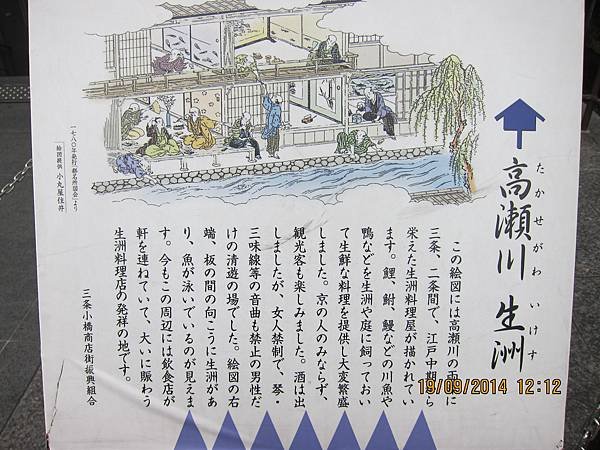 たかせがわ いけす
高瀬川 生洲
この絵図には高瀬川の両岸に
三条、二条間で、江戸中期から
栄えた生洲料理屋が描かれてい
ます。鯉、鮒、鰻などの川魚や
鴨などを生洲や庭に飼っておい
て生鮮な料理を提供し大変繁盛
しました。京の人のみならず、
観光客も楽しみました。酒は出
しましたが、女人禁制で、琴・
三味線等の音曲も禁止の男性だ
けの清遊の場でした。絵図の右
端、板の間の向こうに生洲があ
り、魚が泳いでいるのが見えま
す。今もこの周辺には飲食店が
軒を連ねていて、大いに賑わう
生洲料理店の発祥の地です。
三条小橋商店街振興組合
一七八〇年発行「都名所図会」より
絵図提供 小丸屋住井
19/09/2014 12:12